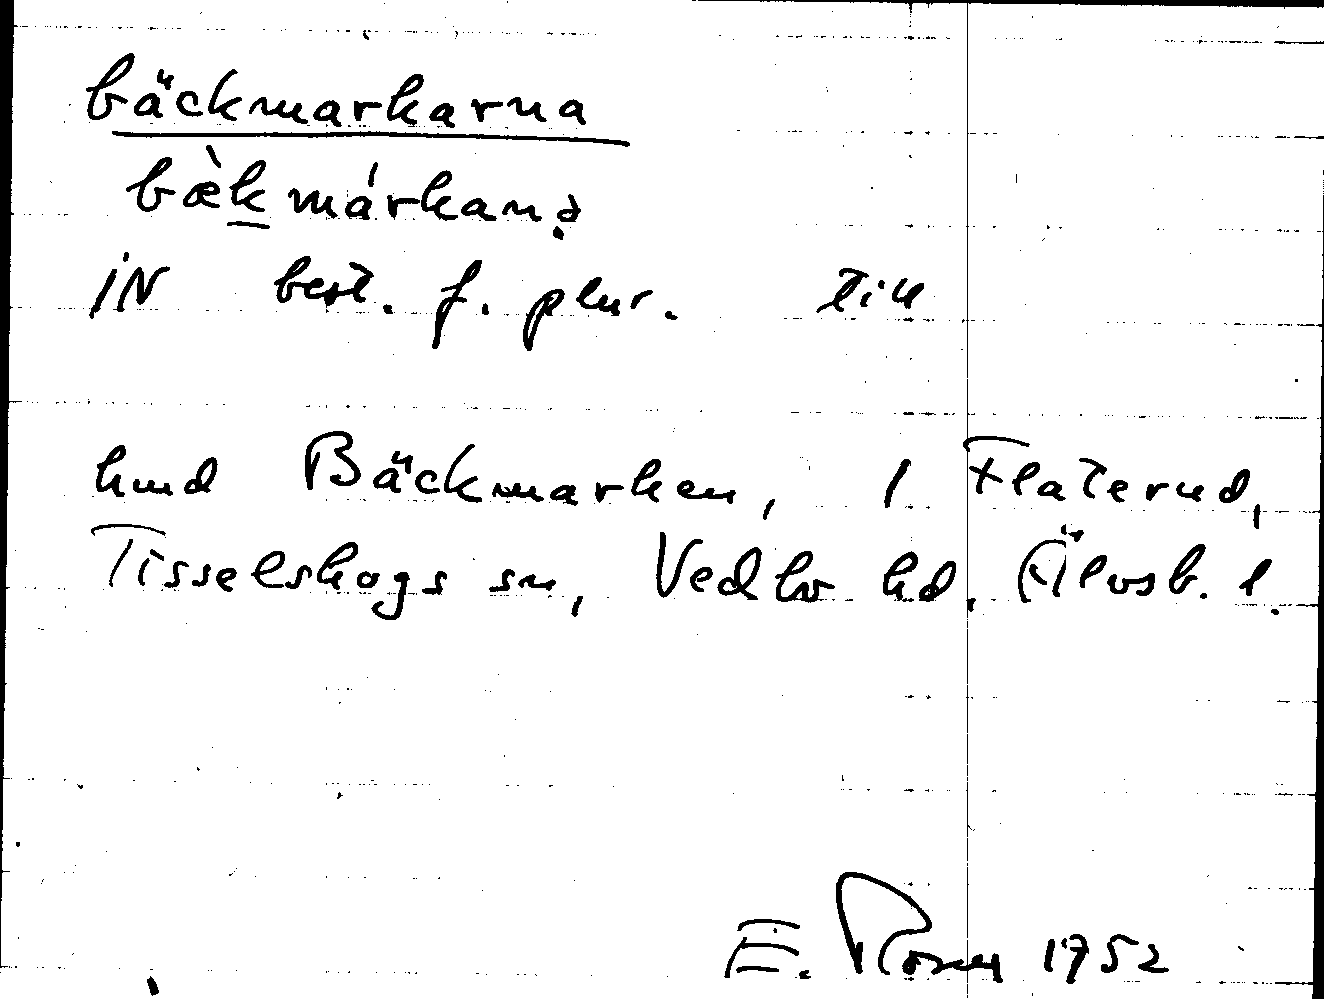 bäckmarkarna
bæ̀k márkanə
IN best. f. plur. till
hmd Bäckmarken, 1 Flaterud,
Tisselskogs sn, Vedbo hd. Älvsb. l.
E. Rosén 1952